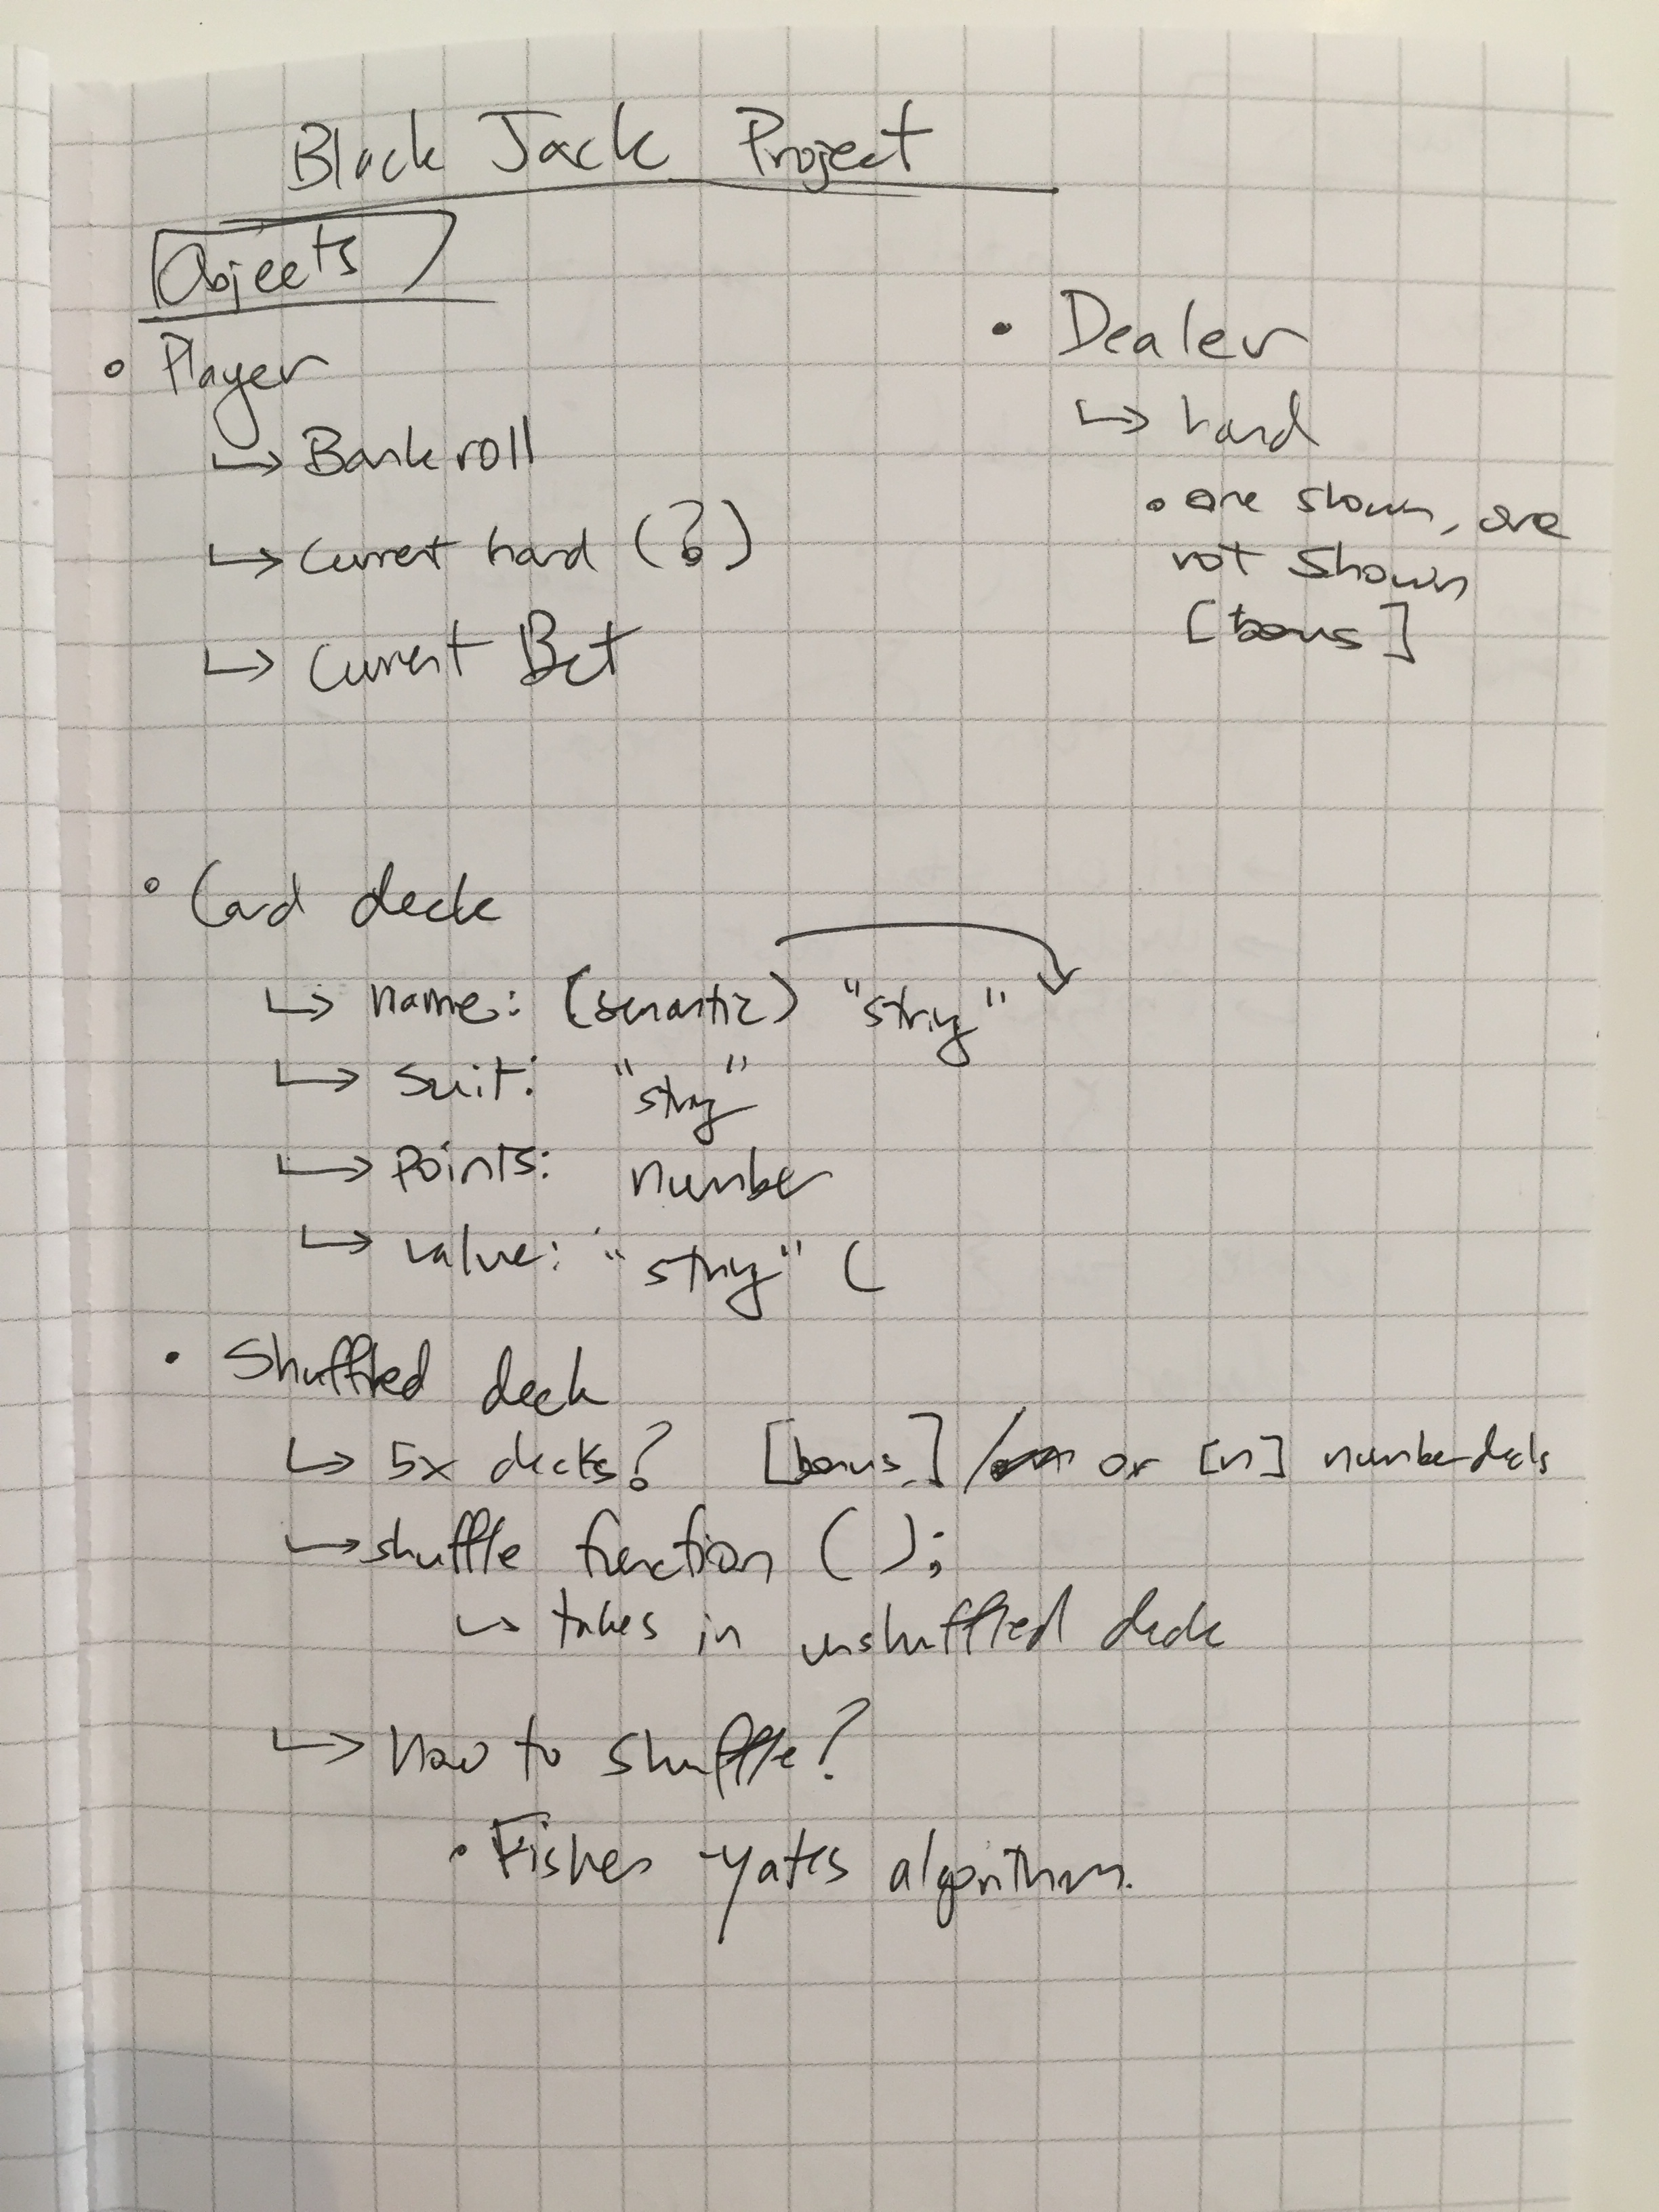 Black Jack Project
Objects
• Player
↳ Bankroll
↳ Current hand (?)
↳ Current Bet
• Dealer
↳ hand
• one shown, one
not shown
[bonus]
• Card deck
↳ name: (semantic) "string"
↳ suit: "string"
↳ points: number
↳ value: "string" (
• Shuffled deck
↳ 5x decks? [bonus] / or [n] number decks
↳ shuffle function ( );
↳ takes in unshuffled deck
↳ how to shuffle?
• Fisher-Yates algorithm.